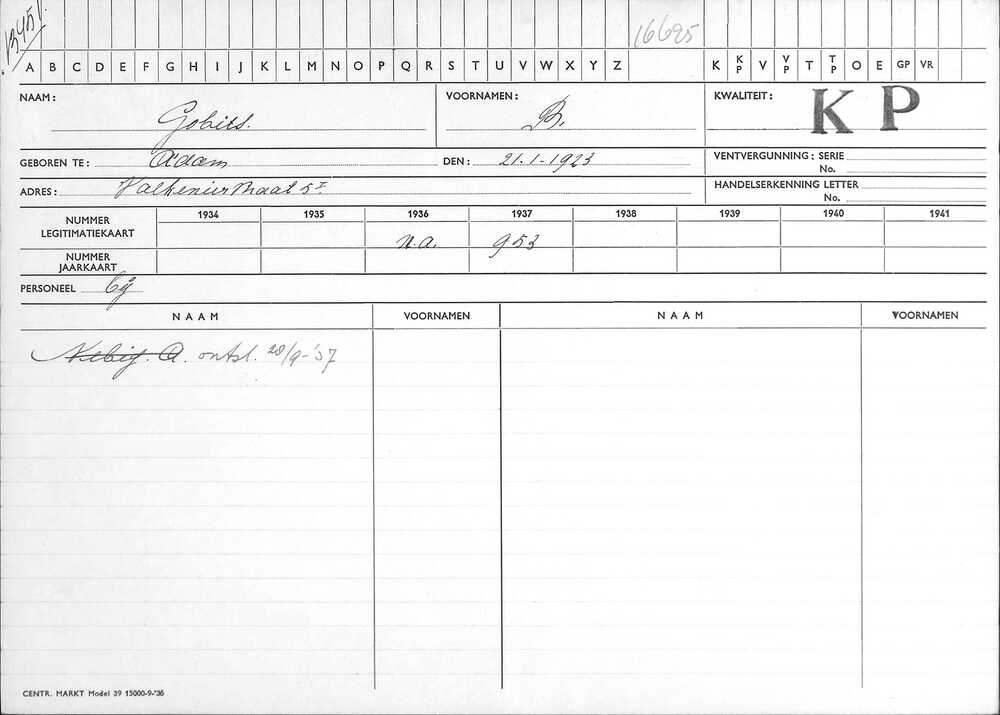 1345 V. 16695
A B C D E F G H I J K L M N O P Q R S T U V W X Y Z K KP V VP T TP O E GP VR
NAAM: Gobits. VOORNAMEN: B. KWALITEIT: K P
GEBOREN TE: A'dam DEN: 21-1-1923 VENTVERGUNNING: SERIE
No.
ADRES: Valkenierstraat 5 I HANDELSERKENNING LETTER
No.
NUMMER LEGITIMATIEKAART 1934 1935 1936 1937 1938 1939 1940 1941
n.a. 953
NUMMER JAARKAART
PERSONEEL bij
NAAM VOORNAMEN NAAM VOORNAMEN
A. ontsl. 28/9-'37
CENTR. MARKT Model 39 15000-9-'36